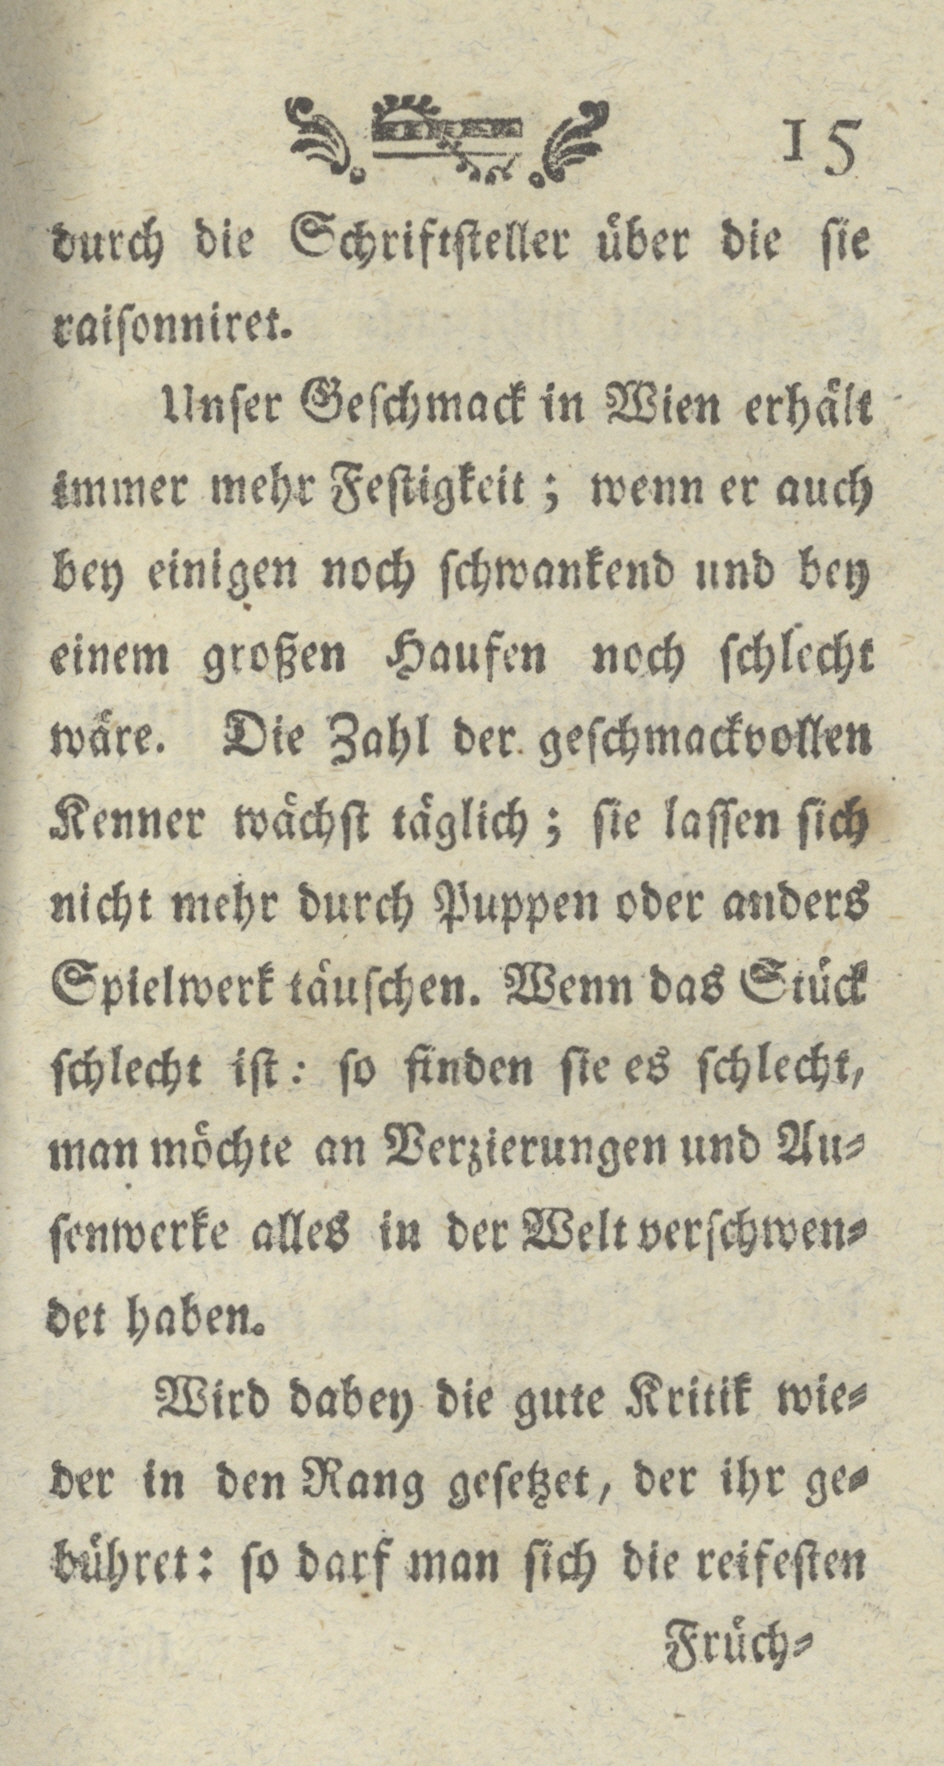 15
durch die Schriftsteller über die sie
raisonniret.
Unser Geschmack in Wien erhält
immer mehr Festigkeit; wenn er auch
bey einigen noch schwankend und bey
einem großen Haufen noch schlecht
wäre. Die Zahl der geschmackvollen
Kenner wächst täglich; sie lassen sich
nicht mehr durch Puppen oder anders
Spielwerk täuschen. Wenn das Stück
schlecht ist: so finden sie es schlecht,
man möchte an Verzierungen und Au-
senwerke alles in der Welt verschwen-
det haben.
Wird dabey die gute Kritik wie-
der in den Rang gesetzet, der ihr ge-
bühret: so darf man sich die reifesten
Früch-